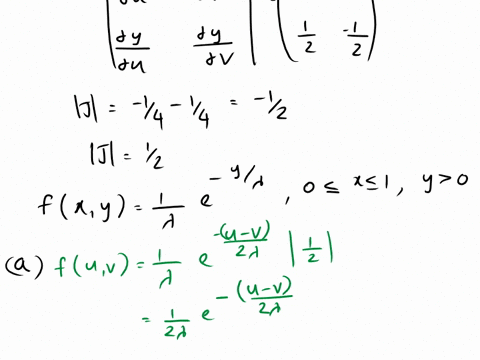 ∂y/∂u ∂y/∂v | (1/2 -1/2)
|J| = -1/4 - 1/4 = -1/2
|J| = 1/2
f(x,y) = 1/λ e^(-y/λ), 0 ≤ x ≤ 1, y > 0
(a) f(u,v) = 1/λ e^(-(u-v)/2λ) |1/2|
= 1/2λ e^(-(u-v)/2λ)